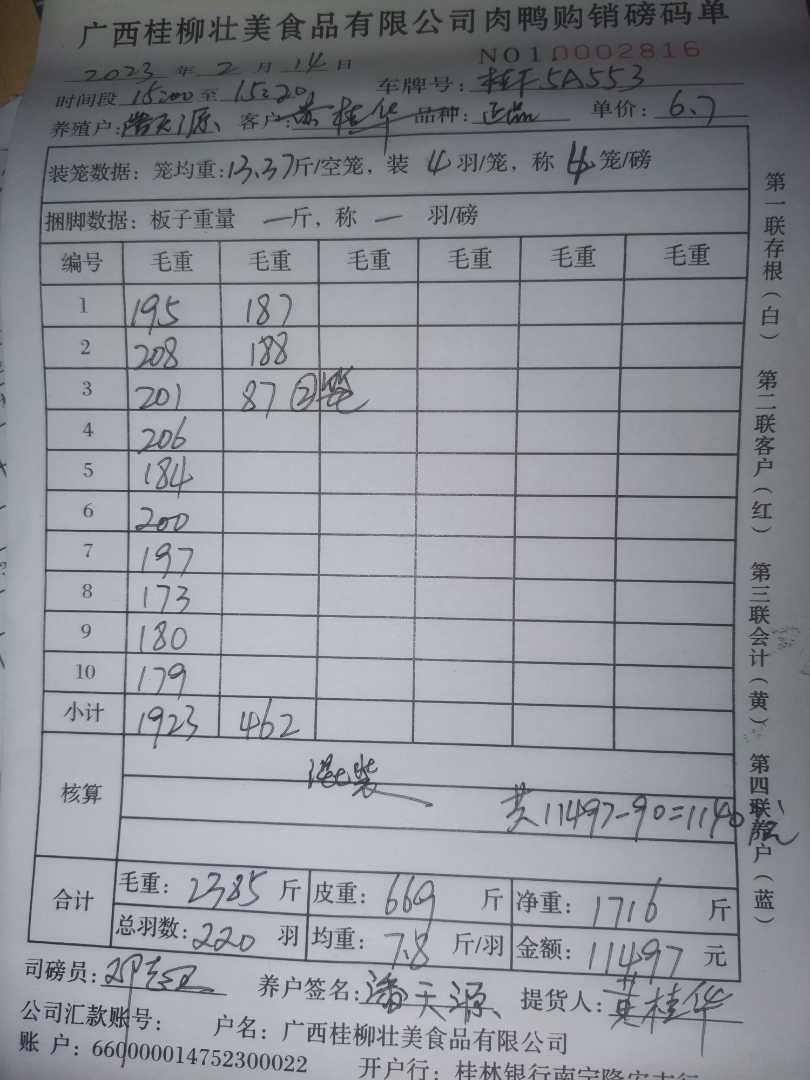 广西桂柳壮美食品有限公司肉鸭购销磅码单
NO10002816
2023 年 2 月 14 日
车牌号：桂F5A553
时间段 15:00 至 15:20
养殖户：潘天源 客户：黄桂华 品种：正品 单价：6.7
装笼数据：笼均重：13.37斤/空笼，装 4 羽/笼，称 4 笼/磅
捆脚数据：板子重量 一斤，称 一 羽/磅
编号 毛重 毛重 毛重 毛重 毛重 毛重
1 195 187
2 208 188
3 201 87 ②笼
4 206
5 184
6 200
7 197
8 173
9 180
10 179
小计 1923 462
核算
混装
共11497-90=1140
合计 毛重：2385 斤 皮重：669 斤 净重：1716 斤
总羽数：220 羽 均重：7.8 斤/羽 金额：11497 元
司磅员： 养户签名：潘天源 提货人：黄桂华
公司汇款账号： 户名：广西桂柳壮美食品有限公司
账 户：660000014752300022
开户行：桂林银行南宁隆安支行
第一联存根（白） 第二联客户（红） 第三联会计（黄） 第四联养户（蓝）